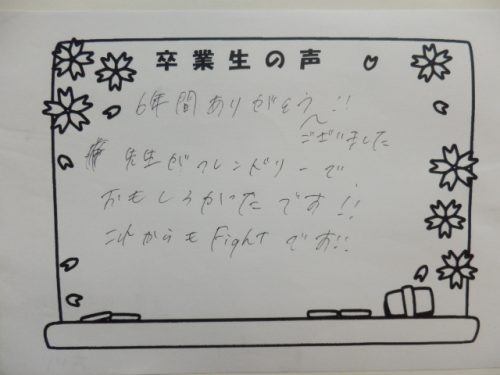 卒業生の声
6年間ありがとう!!
ございました
先生がフレンドリーで
おもしろかったです!!
これからもFightです!!